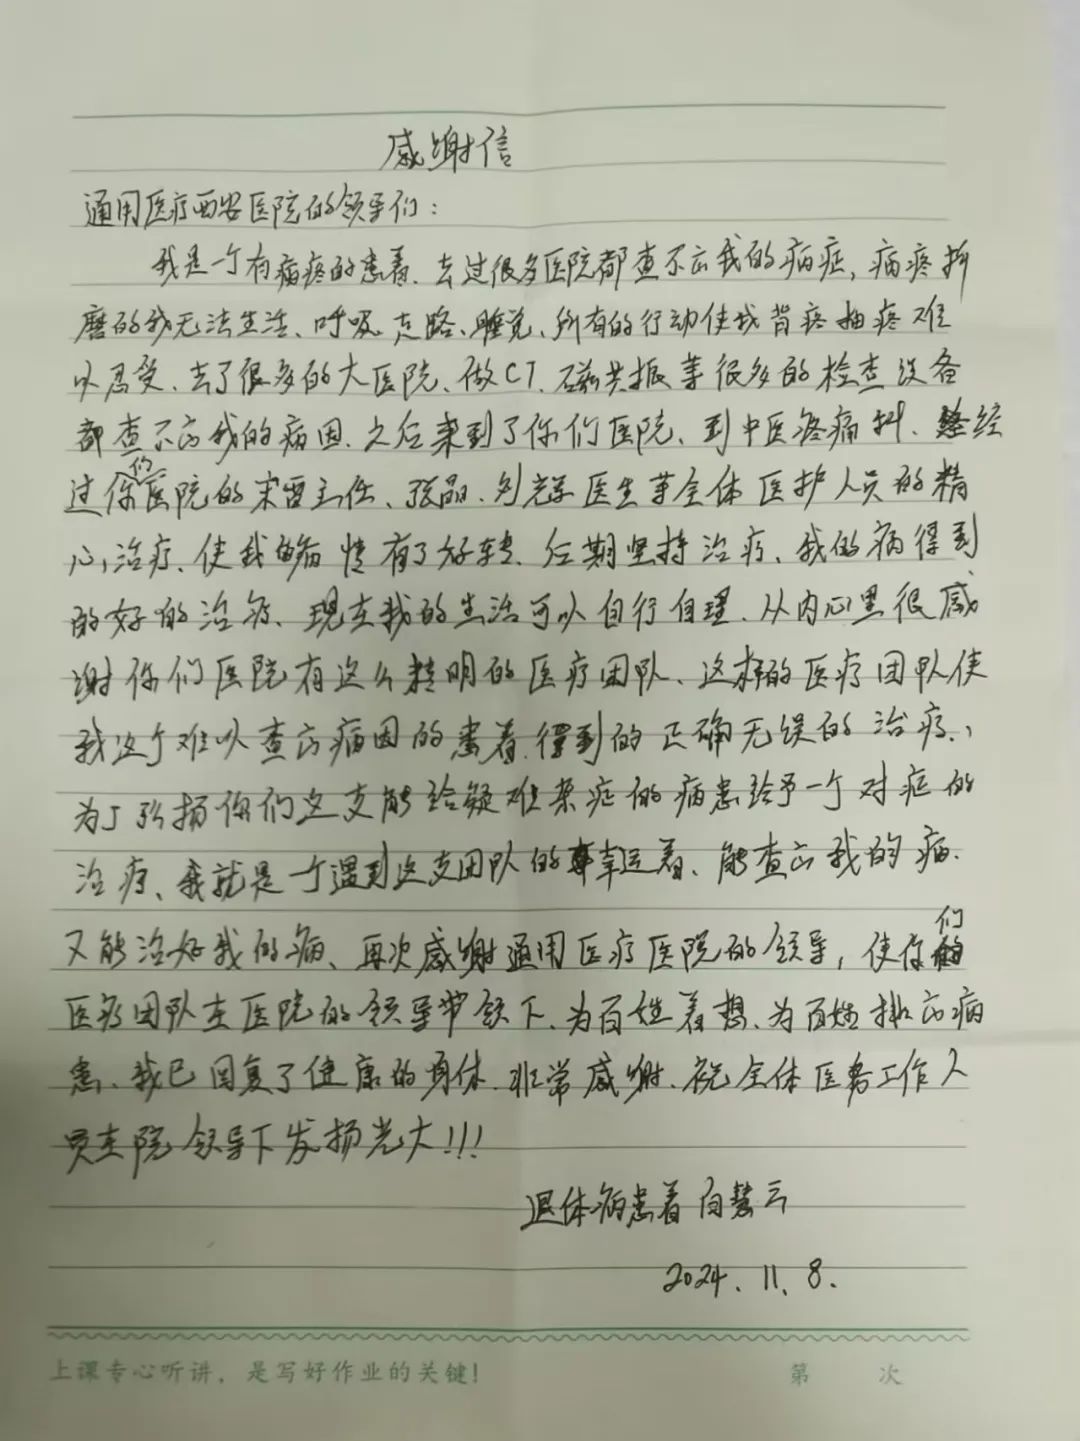 感谢信
通用医疗西安医院的领导们：
我是一个有病疼的患者、去过很多医院都查不出我的病症，病疼折
磨的我无法生活、呼吸、走路、睡觉、所有的行动使我背疼抽疼难
以忍受、去了很多的大医院、做CT、磁共振等很多的检查设备
都查不出我的病因、之后来到了你们医院、到中医疼痛科、经
过你们医院的宋雷主任、张晶、医生等全体医护人员的精
心治疗、使我的病情有了好转、后期坚持治疗、我的病得到
的好的治疗、现在我的生活可以自行自理、从内心里很感
谢你们医院有这么精明的医疗团队、这样的医疗团队使
我这个难以查出病因的患者、得到的正确无误的治疗、
为了弘扬你们这支能给疑难杂症的病患给予一个对症的
治疗、我就是一个遇到这支团队的幸运者、能查出我的病、
又能治好我的病、再次感谢通用医疗医院的领导，使你们的
医疗团队在医院的领导带领下、为百姓着想、为百姓排出病
患、我已回复了健康的身体、非常感谢、祝全体医务工作人
员在院领导下发扬光大!!!
退休病患者 白慧云
2024.11.8.
上课专心听讲，是写好作业的关键!
第 次